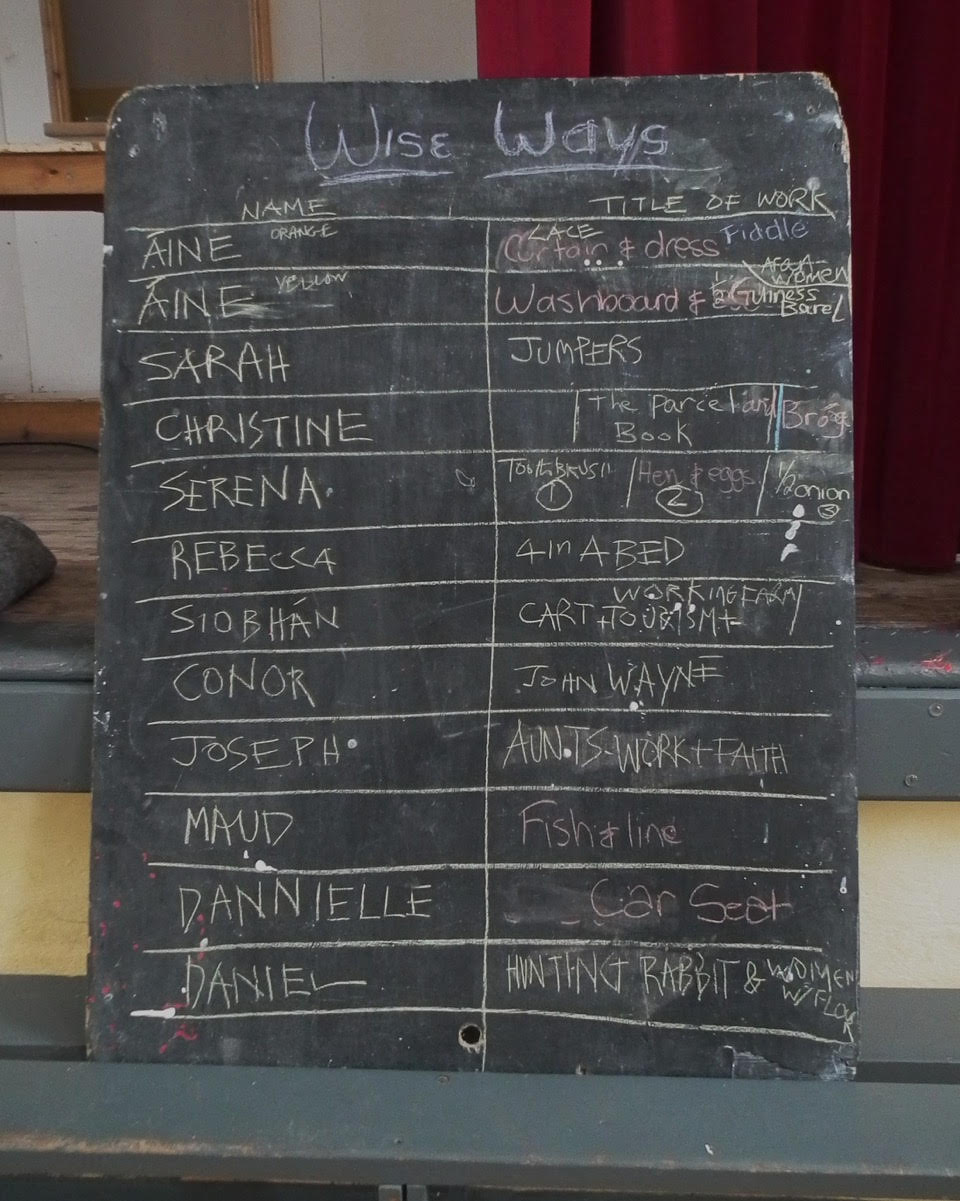 Wise Ways
NAME TITLE OF WORK
ÁINE ORANGE LACE Curtain & dress Fiddle
ÁINE YELLOW Washboard & 1/2 Guiness Barel Women
SARAH JUMPERS
CHRISTINE the parcel and Book Bróg
SERENA TOOTHBRUSH 1 Hen & eggs 2 1/2 onion 3
REBECCA 4 in A BED
SIOBHÁN CART + TOURISM + WORKING FARM
CONOR JOHN WAYNE
JOSEPH AUNTS-WORK + FAITH
MAUD Fish & line
DANNIELLE Car Seat
DANIEL HUNTING RABBIT & WOMEN
W/